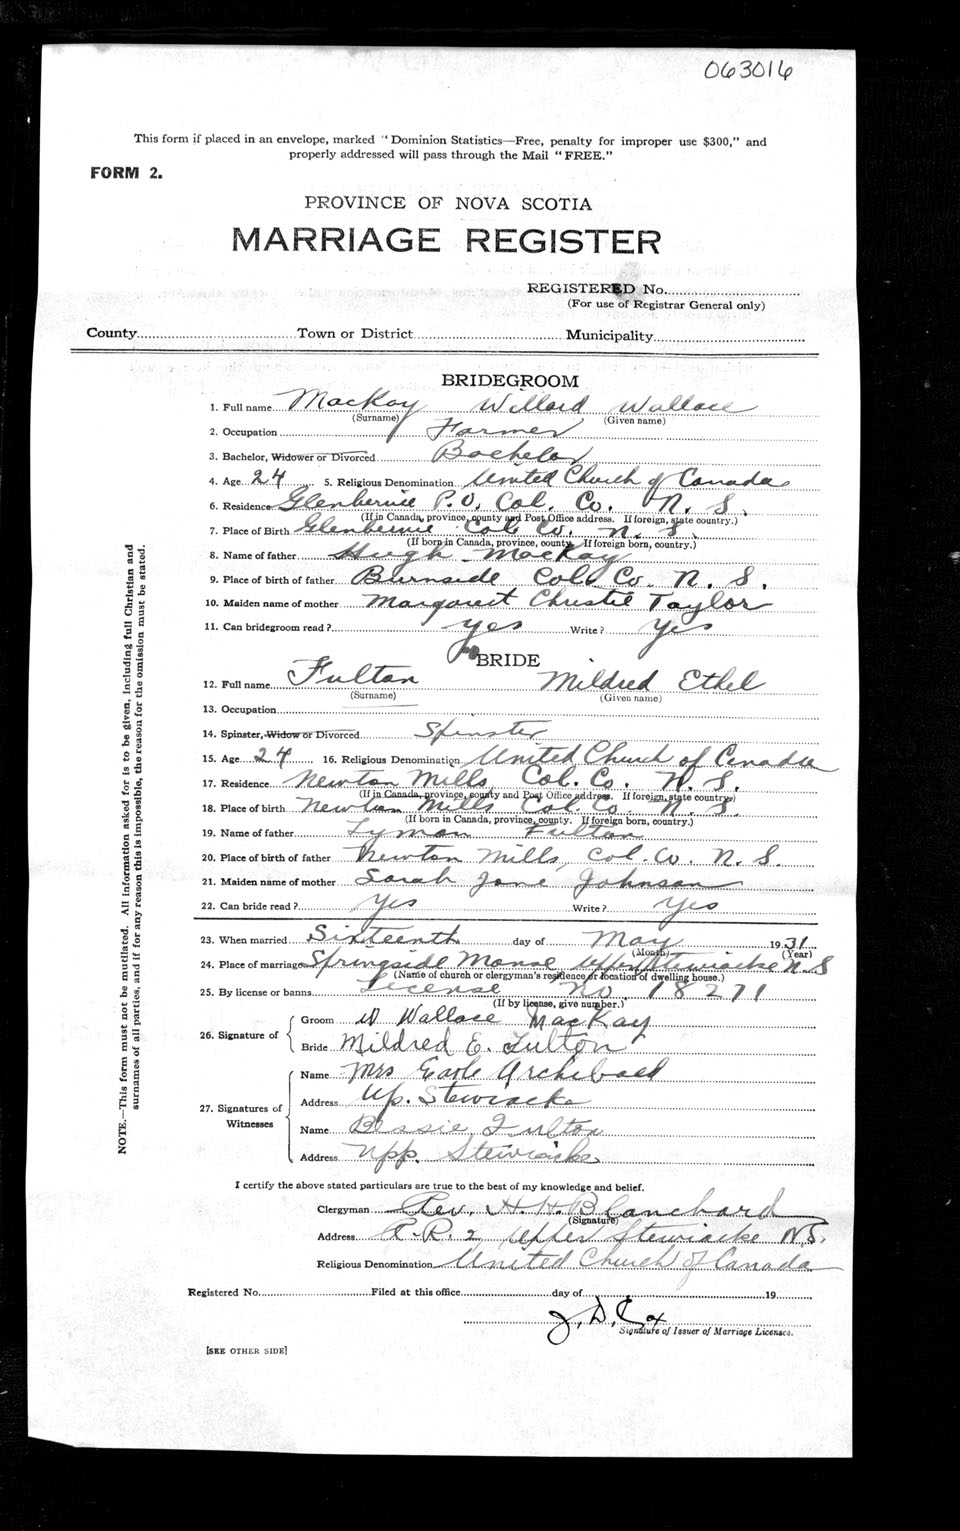 063016
This form if placed in an envelope, marked "Dominion Statistics—Free, penalty for improper use $300," and
properly addressed will pass through the Mail "FREE."
FORM 2.
PROVINCE OF NOVA SCOTIA
MARRIAGE REGISTER
REGISTERED No.
(For use of Registrar General only)
County Town or District Municipality
BRIDEGROOM
1. Full name MacKay Willard Wallace
(Surname) (Given name)
2. Occupation Farmer
3. Bachelor, Widower or Divorced Bachelor
4. Age 24 5. Religious Denomination United Church of Canada
6. Residence Glenbervie P.O. Col. Co. N. S.
(If in Canada, province, county and Post Office address. If foreign, state country.)
7. Place of Birth Glenbervie Col. Co. N. S.
(If born in Canada, province, county. If foreign born, country.)
8. Name of father Hugh MacKay
9. Place of birth of father Burnside Col. Co. N. S.
10. Maiden name of mother Margaret Christie Taylor
11. Can bridegroom read? yes Write? yes
BRIDE
12. Full name Fulton Mildred Ethel
(Surname) (Given name)
13. Occupation
14. Spinster, Widow or Divorced Spinster
15. Age 24 16. Religious Denomination United Church of Canada
17. Residence Newton Mills Col. Co. N. S.
(If in Canada, province, county and Post Office address. If foreign, state country)
18. Place of birth Newton Mills Col. Co. N. S.
(If born in Canada, province, county. If foreign born, country.)
19. Name of father Lyman Fulton
20. Place of birth of father Newton Mills, Col. Co. N. S.
21. Maiden name of mother Sarah Jane Johnson
22. Can bride read? Yes Write? Yes
23. When married Sixteenth day of May 1931
(Month) (Year)
24. Place of marriage Springside Manse Upper Stewiacke N.S
(Name of church or clergyman's residence or location of dwelling house.)
25. By license or banns License No 18271
(If by license, give number.)
26. Signature of
Groom W Wallace MacKay
Bride Mildred E. Fulton
27. Signatures of Witnesses
Name Mrs Earle Archibald
Address Up. Stewiacke
Name Bessie Fulton
Address Upp. Stewiacke
I certify the above stated particulars are true to the best of my knowledge and belief.
Clergyman Rev. H. H. Blanchard
(Signature)
Address R.R. 2 Upper Stewiacke N.S.
Religious Denomination United Church of Canada
Registered No. Filed at this office day of 19
J. D. Cox
Signature of Issuer of Marriage Licenses.
[SEE OTHER SIDE]
NOTE.—This form must not be mutilated. All information asked for is to be given, including full Christian and
surnames of all parties, and if for any reason this is impossible, the reason for the omission must be stated.